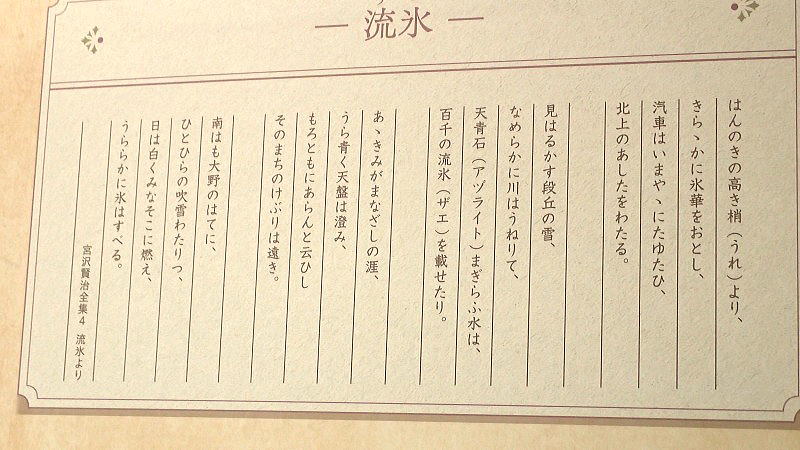 流氷
はんのきの高き梢(うれ)より、
きらゝかに氷華をおとし、
汽車はいまやゝにたゆたひ、
北上のあしたをわたる。
見はるかす段丘の雪、
なめらかに川はうねりて、
天青石(アヅライト)まぎらふ水は、
百千の流氷(ザエ)を載せたり。
あゝきみがまなざしの涯、
うら青く天盤は澄み、
もろともにあらんと云ひし
そのまちのけぶりは遠き。
南はも大野のはてに、
ひとひらの吹雪わたりつ、
日は白くみなそこに燃え、
うららかに氷はすべる。
宮沢賢治全集4 流氷より